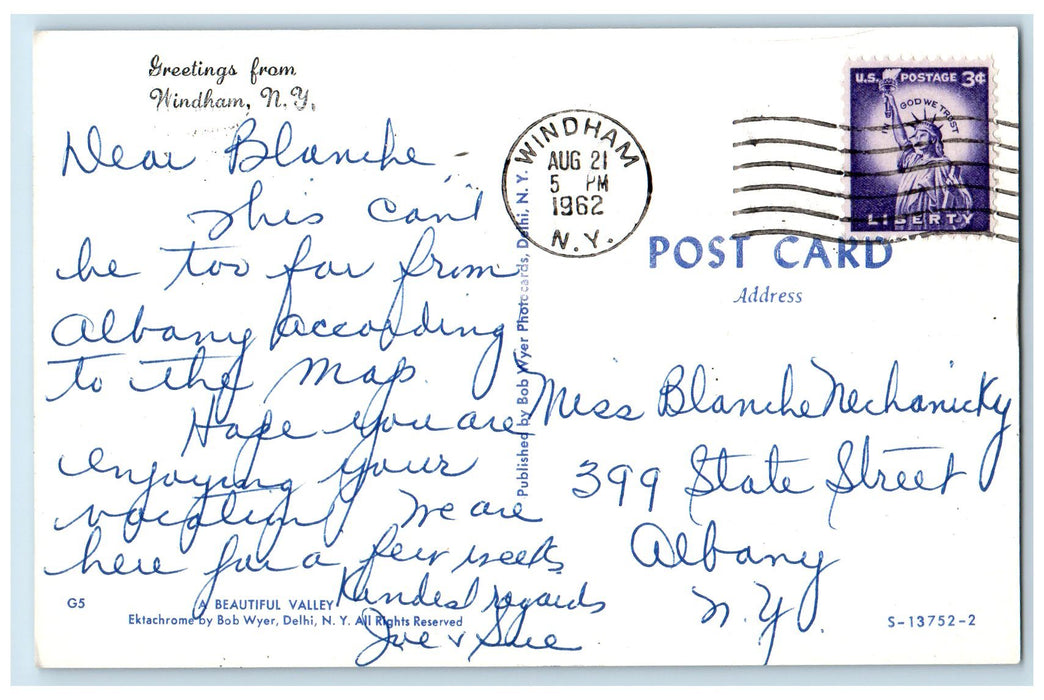 Greetings from
Windham, N.Y.
Dear Blanche -
This can't
be too far from
Albany according
to the map.
Hope you are
enjoying your
vacation. We are
here for a few weeks.
Kindest regards
Joe & Sue
G5
A BEAUTIFUL VALLEY
Ektachrome by Bob Wyer, Delhi, N. Y. All Rights Reserved
Published by Bob Wyer Photocards, Delhi, N. Y.
WINDHAM
AUG 21
5 PM
1962
N.Y.
U.S. POSTAGE 3¢
IN GOD WE TRUST
LIBERTY
POST CARD
Address
Miss Blanche Nechanicky
399 State Street
Albany
N.Y.
S-13752-2